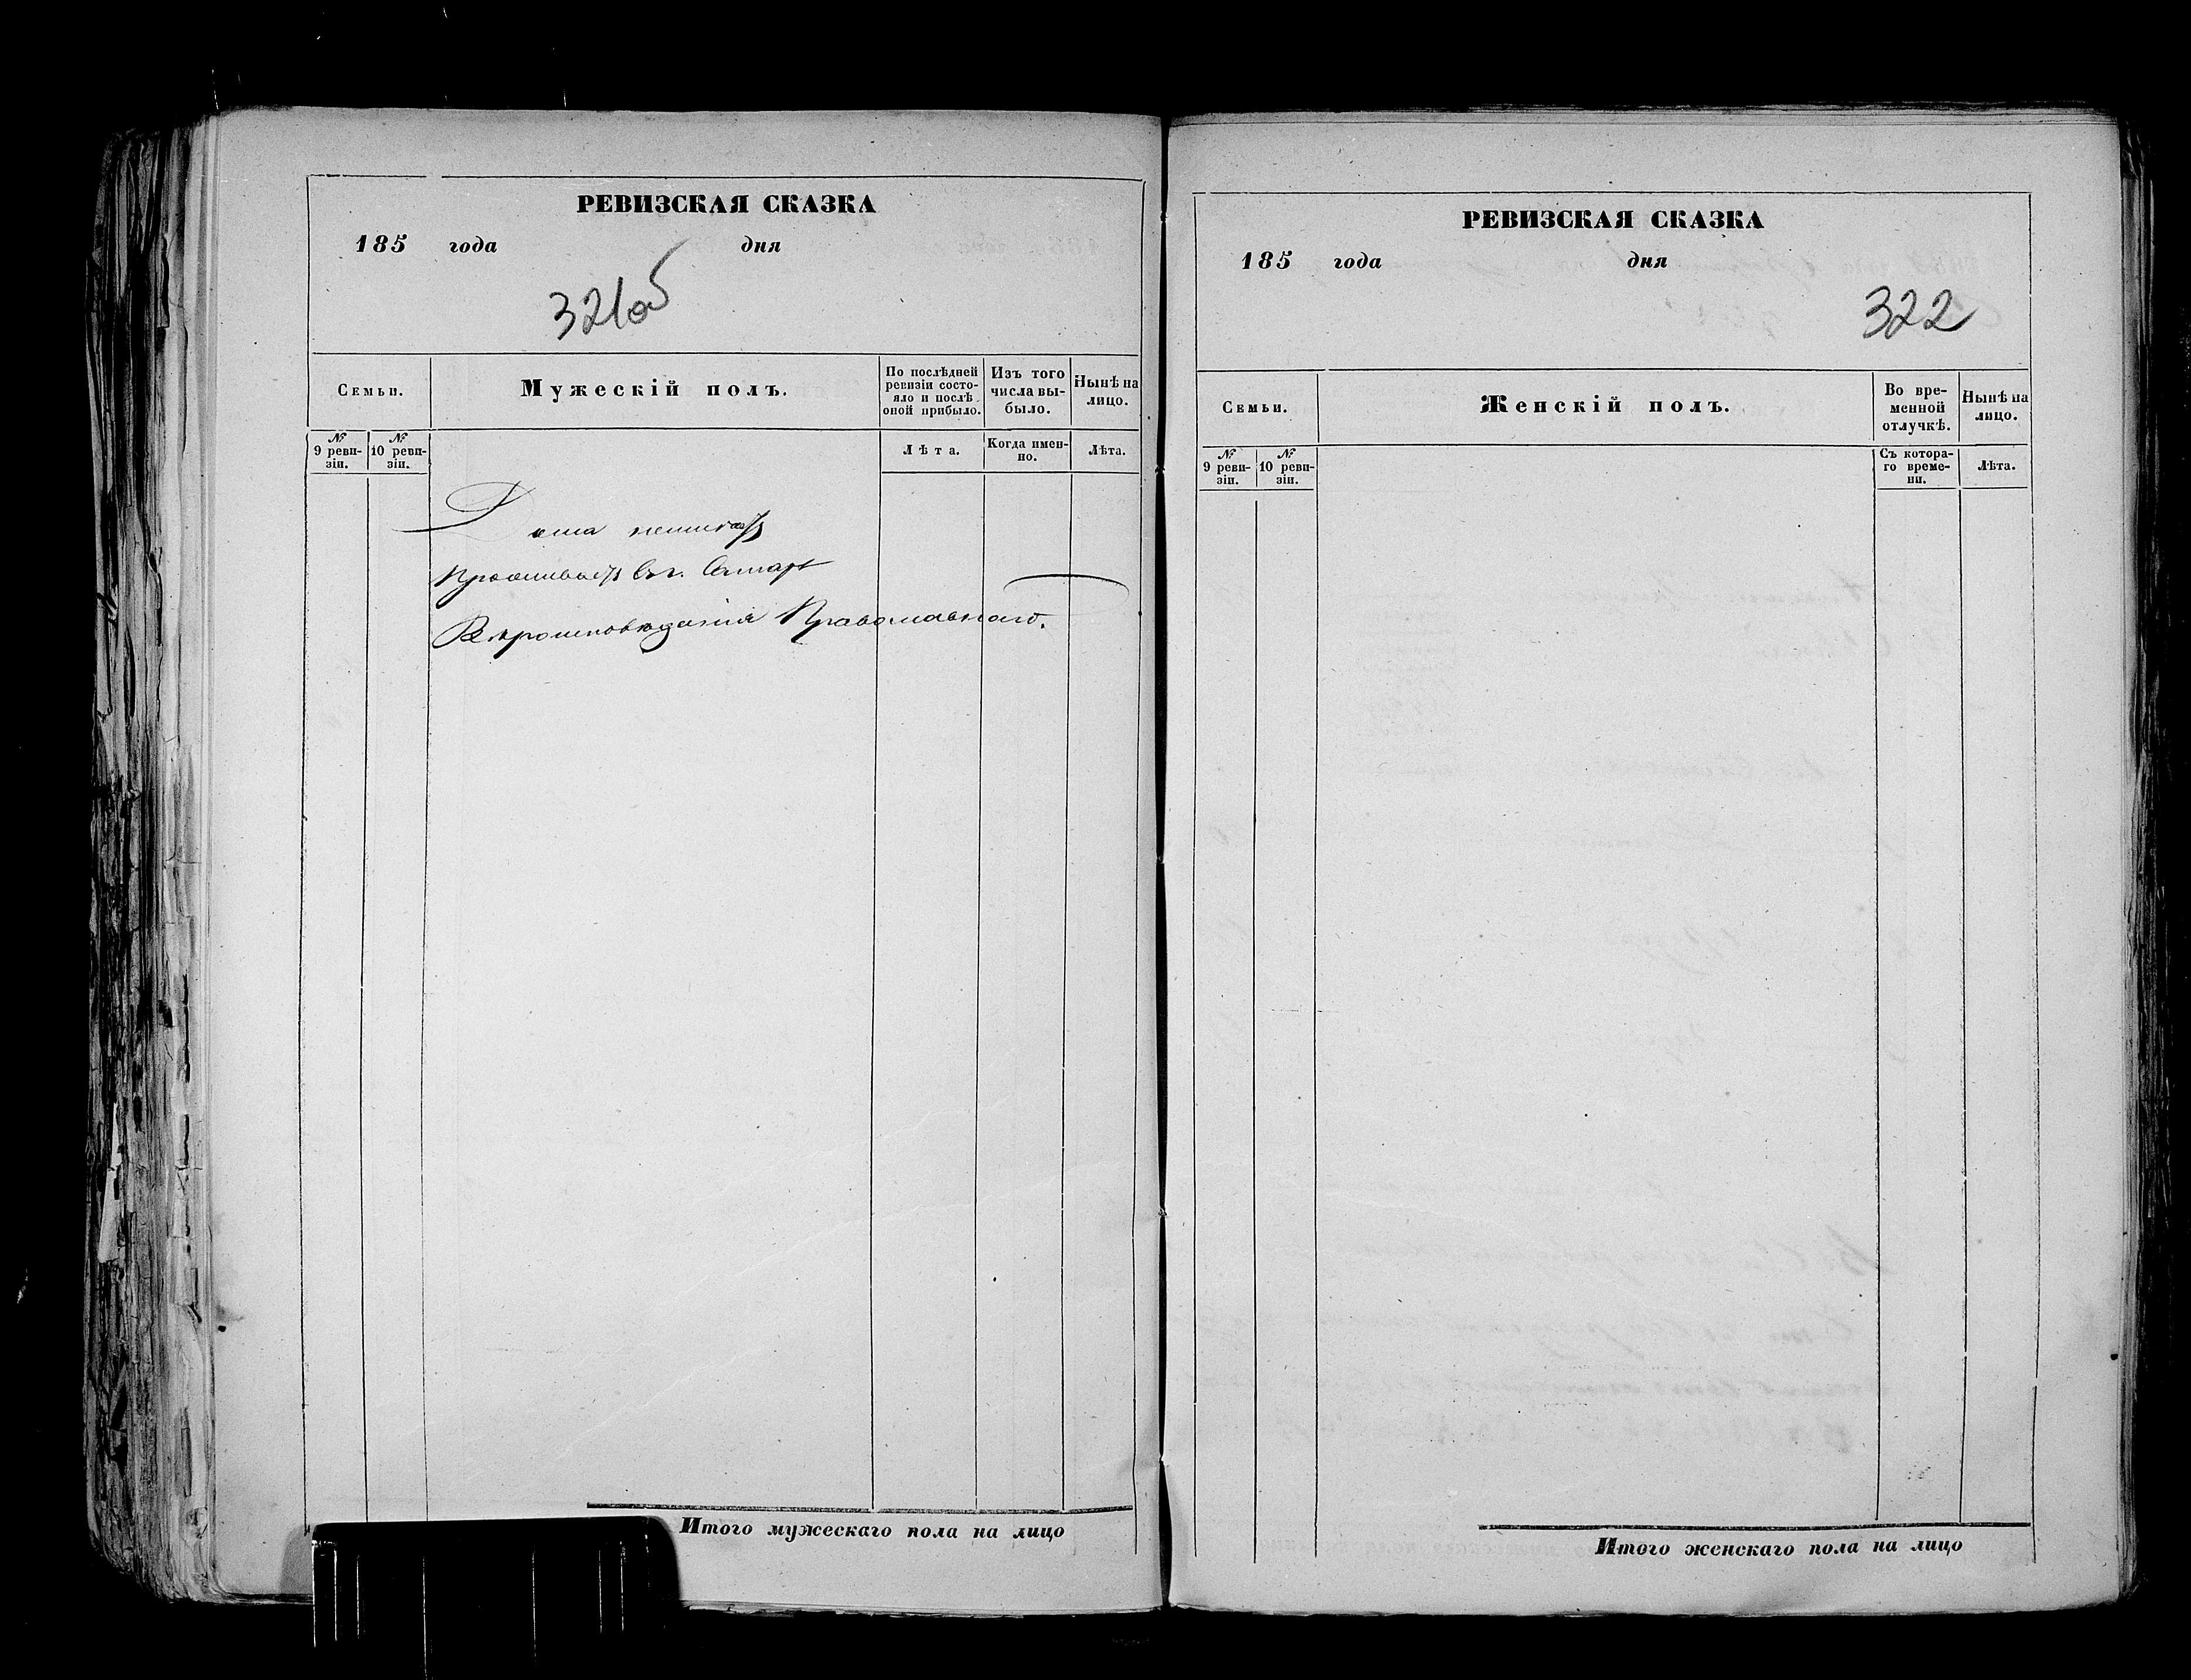 РЕВИЗСКАЯ СКАЗКА
185 года дня
321об
Семьи.
Мужескій полъ.
По послѣдней ревизіи состояло и послѣ оной прибыло.
Изъ того числа выбыло.
Нынѣ на лицо.
№ 9 ревизіи.
№ 10 ревизіи.
Лѣта.
Когда именно.
Лѣта.
Дома неимеетъ
Проживаетъ въ г. Самарѣ
Вѣроисповѣданія Православнаго.
Итого мужескаго пола на лицо
РЕВИЗСКАЯ СКАЗКА
185 года дня
322
Семьи.
Женскій полъ.
Во временной отлучкѣ.
Нынѣ на лицо.
№ 9 ревизіи.
№ 10 ревизіи.
Съ котораго времени.
Лѣта.
Итого женскаго пола на лицо